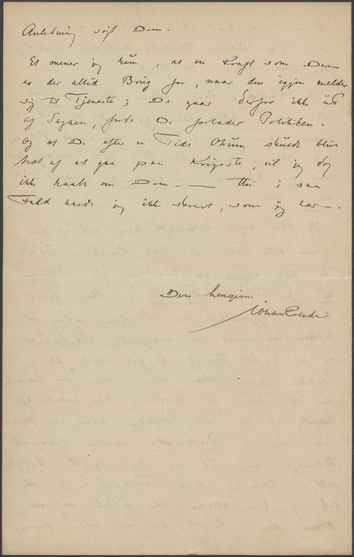 Anledning vist Dem.
Et mener jeg kun, at en Kraft som Dem
er der altid Brug for, naar den igjen melder
sig til Tjeneste; De gaar derfor ikke ud
af Sagaen, fordi De forlader Politiken.
Og at De efter en Tids Otium skulde blive
ked af at gaa paa, vil jeg dog
ikke haabe om Dem — thi i saa
Fald kendte jeg ikke, som jeg
Deres hengivne